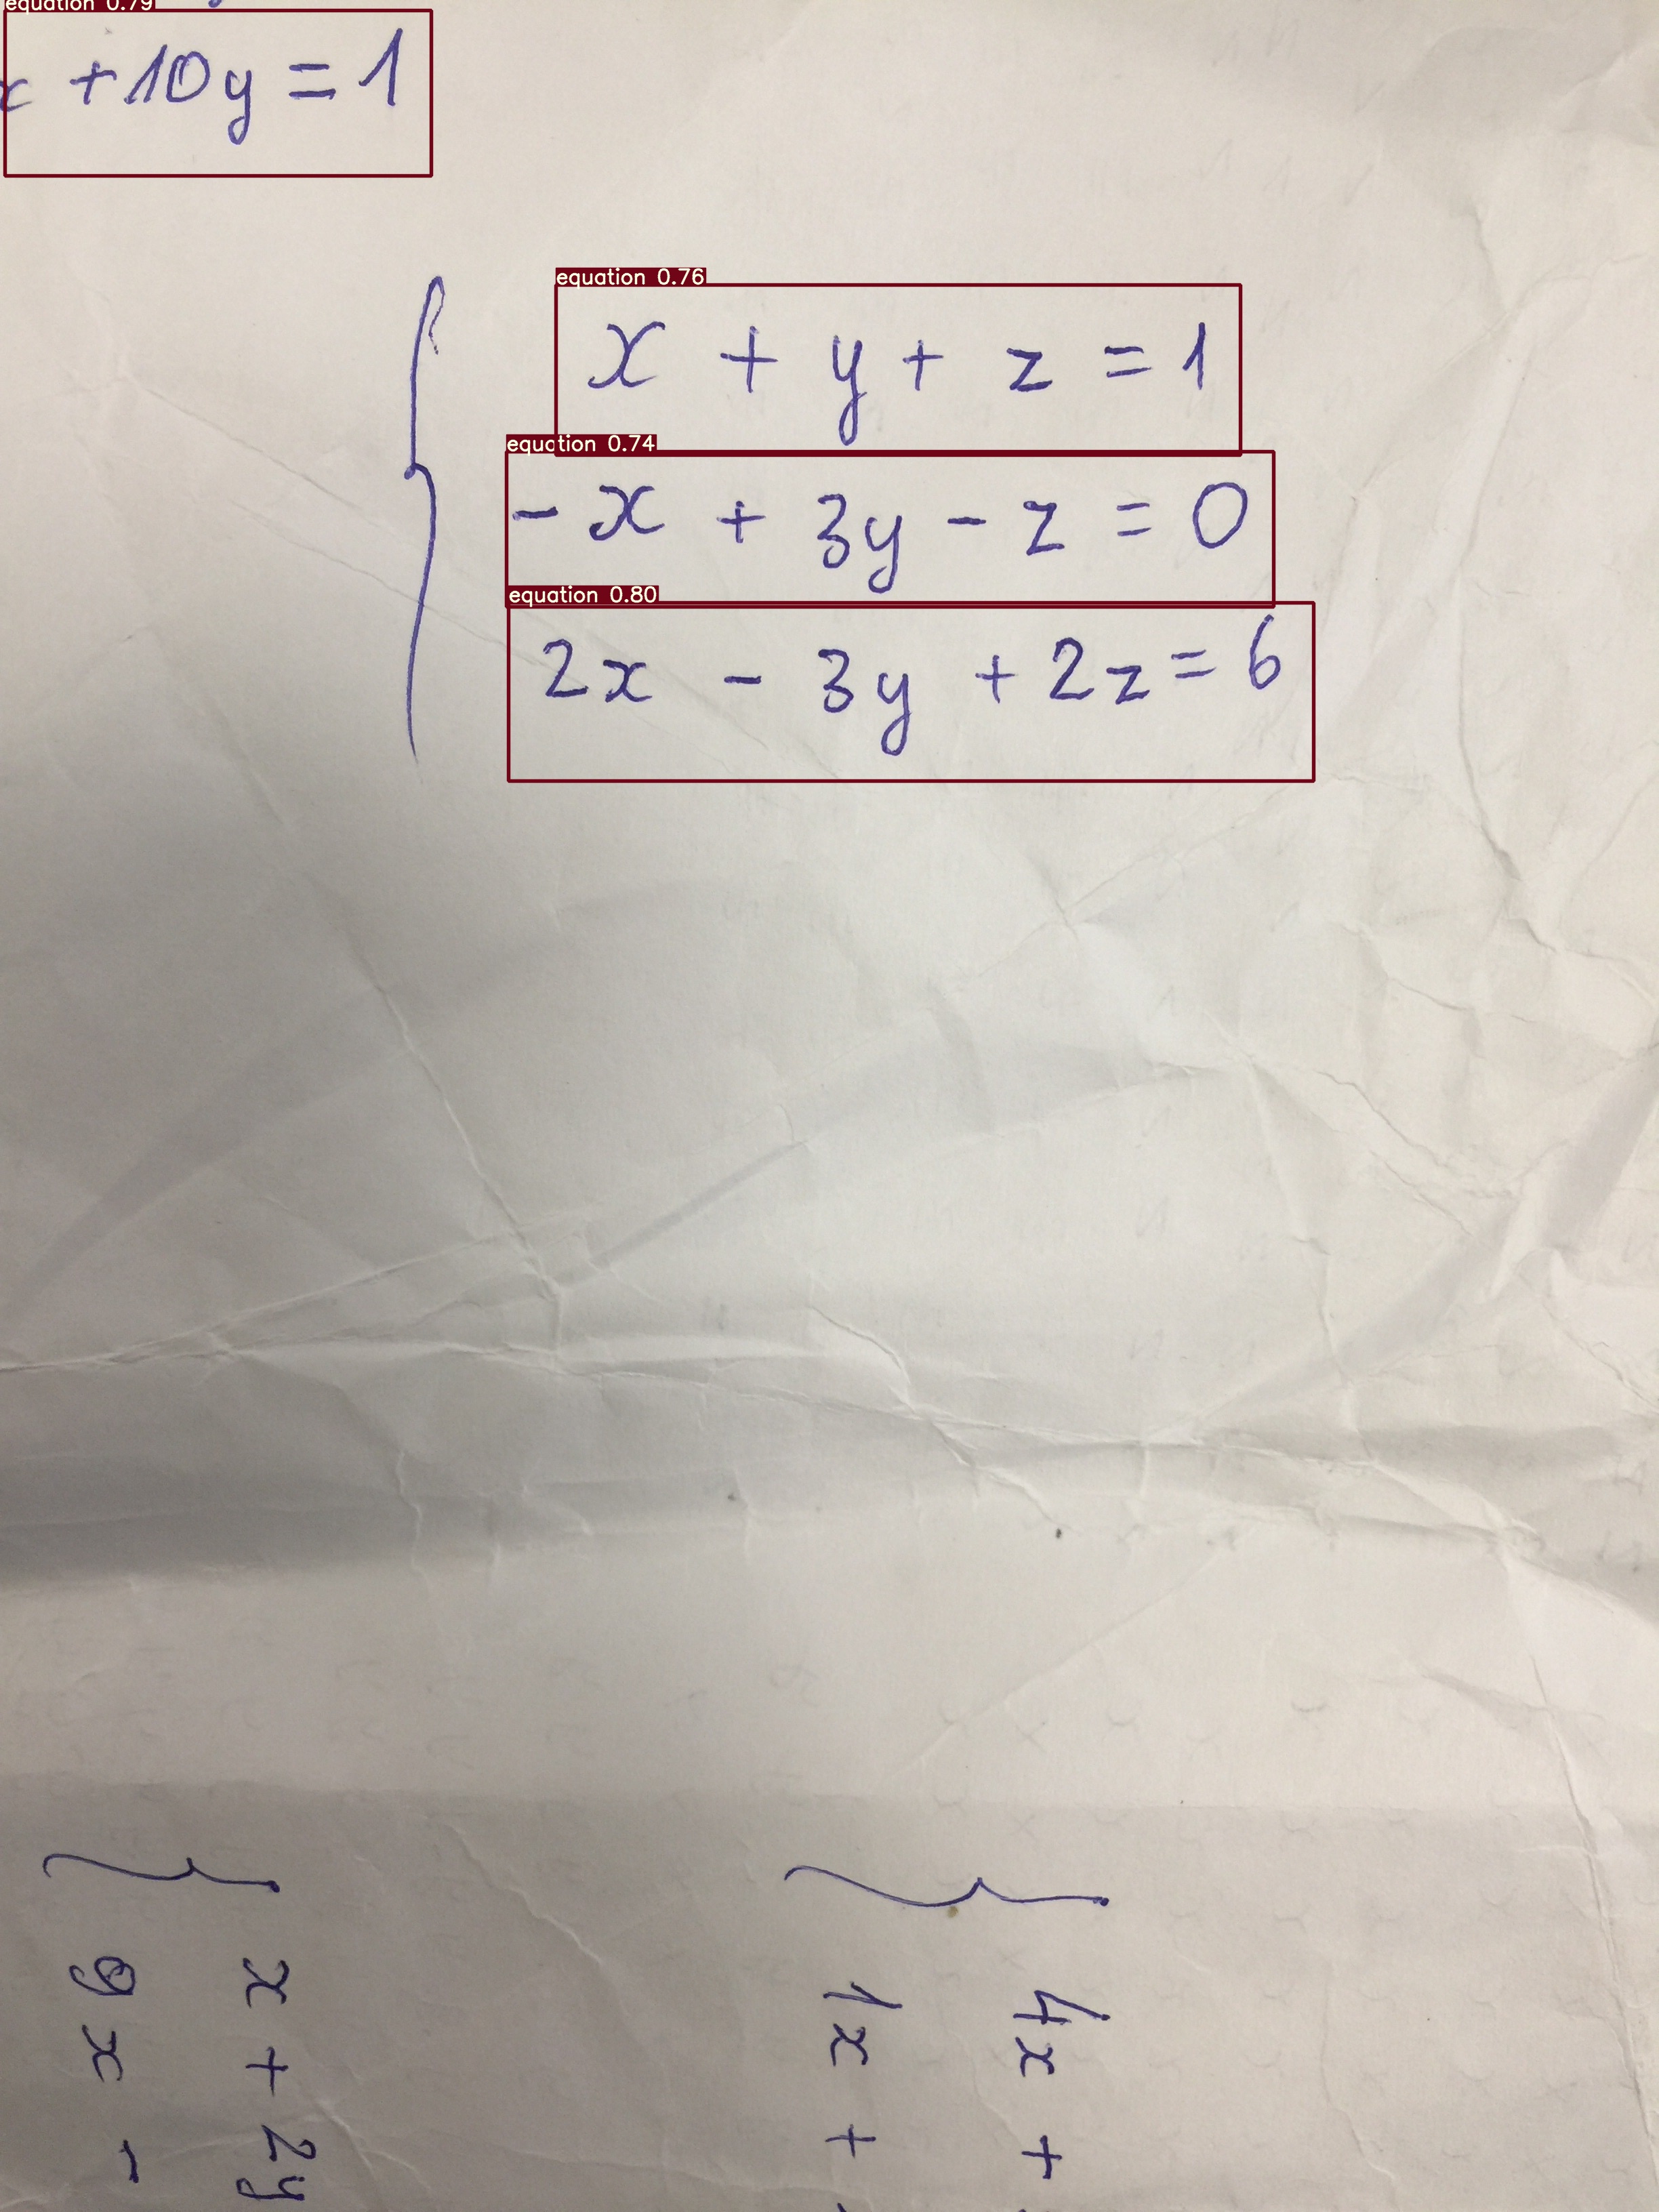 equation 0.79
x + 10y = 1
equation 0.76
x + y + z = 1
equation 0.74
- x + 3y - z = 0
equation 0.80
2x - 3y + 2z = 6
4x +
1x +
x + 2y
9x -